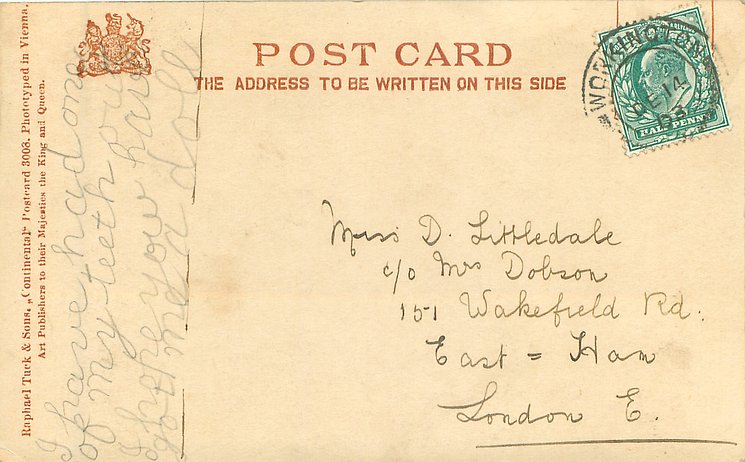 POST CARD
THE ADDRESS TO BE WRITTEN ON THIS SIDE
WORKINGTON
DE 14
03
HALF PENNY
Miss D. Littledale
c/o Mrs Dobson
151 Wakefield Rd.
East = Ham
London E.
I have had one
of my teeth out
I hope you have
got me a doll
Raphael Tuck & Sons, „Continental" Postcard 3003. Phototyped in Vienna.
Art Publishers to their Majesties the King and Queen.